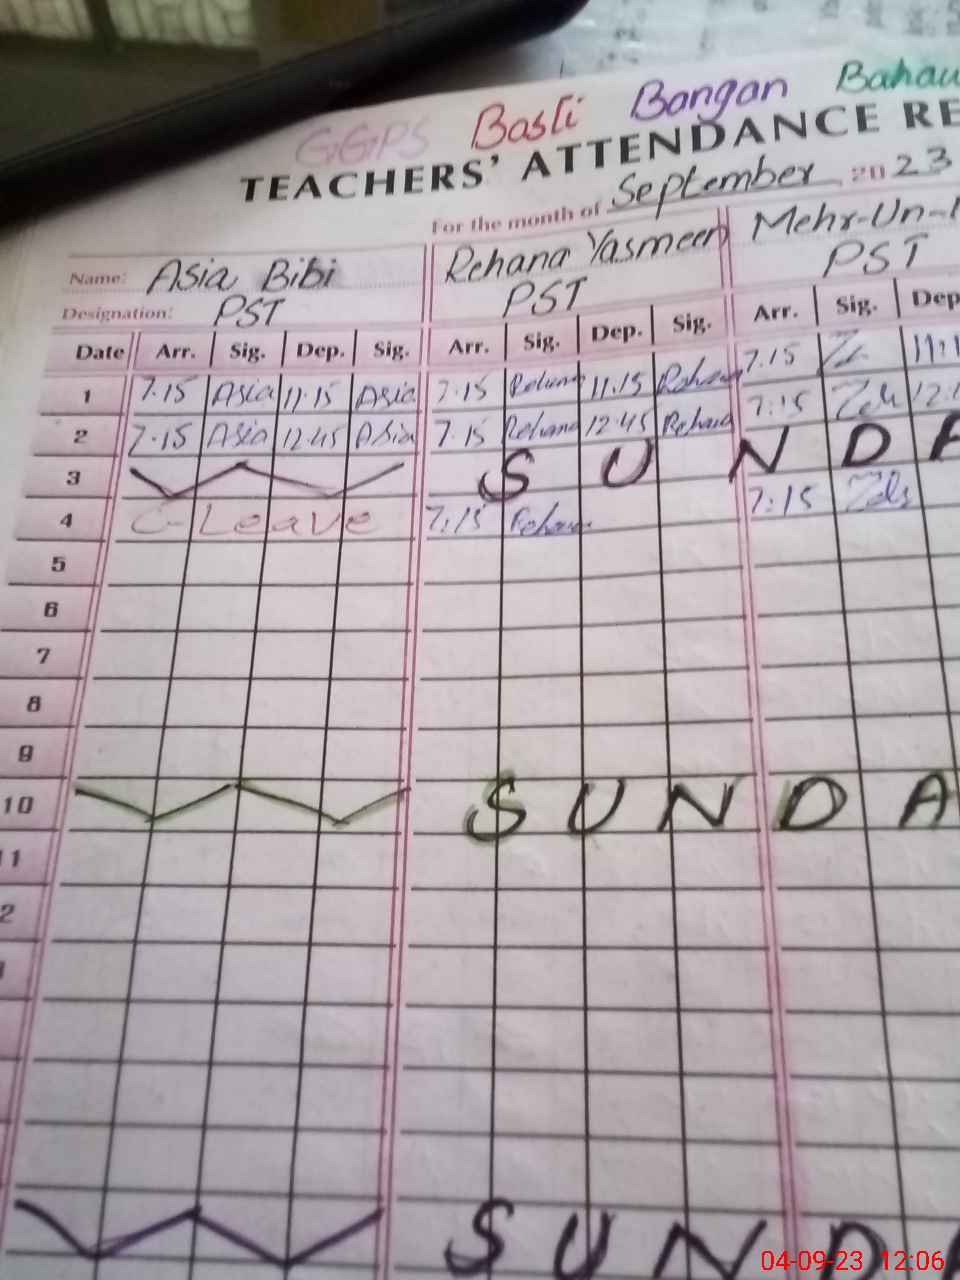 GGPS Basti Bangan Bahau
TEACHERS' ATTENDANCE RE
For the month of September 2023
Name: Asia Bibi Rehana Yasmeen Mehr-Un-
Designation: PST PST PST
Date Arr. Sig. Dep. Sig. Arr. Sig. Dep. Sig. Arr. Sig. Dep
1 7.15 Asia 11.15 Asia 7.15 Rehana 11.15 Rehana 7.15 11:1
2 7.15 Asia 12.45 Asia 7.15 Rehana 12.45 Rehana 7:15 12:
3 S U N D A
4 C-Leave 7:15 Rehana 7:15
5
6
7
8
9
10 S U N D A
11
2
S U N D A
04-09-23 12:06